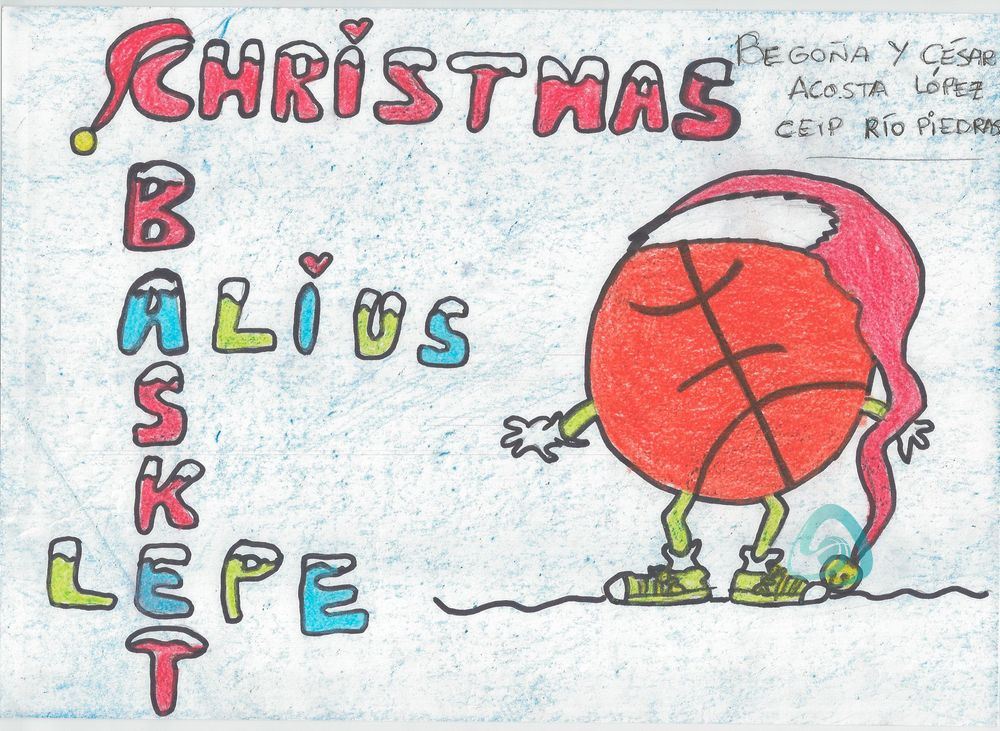 CHRiSTMAS
BEGOÑA Y CÉSAR
ACOSTA LÓPEZ
CEIP RÍO PIEDRAS
BASKET
ALiUS
LEPE